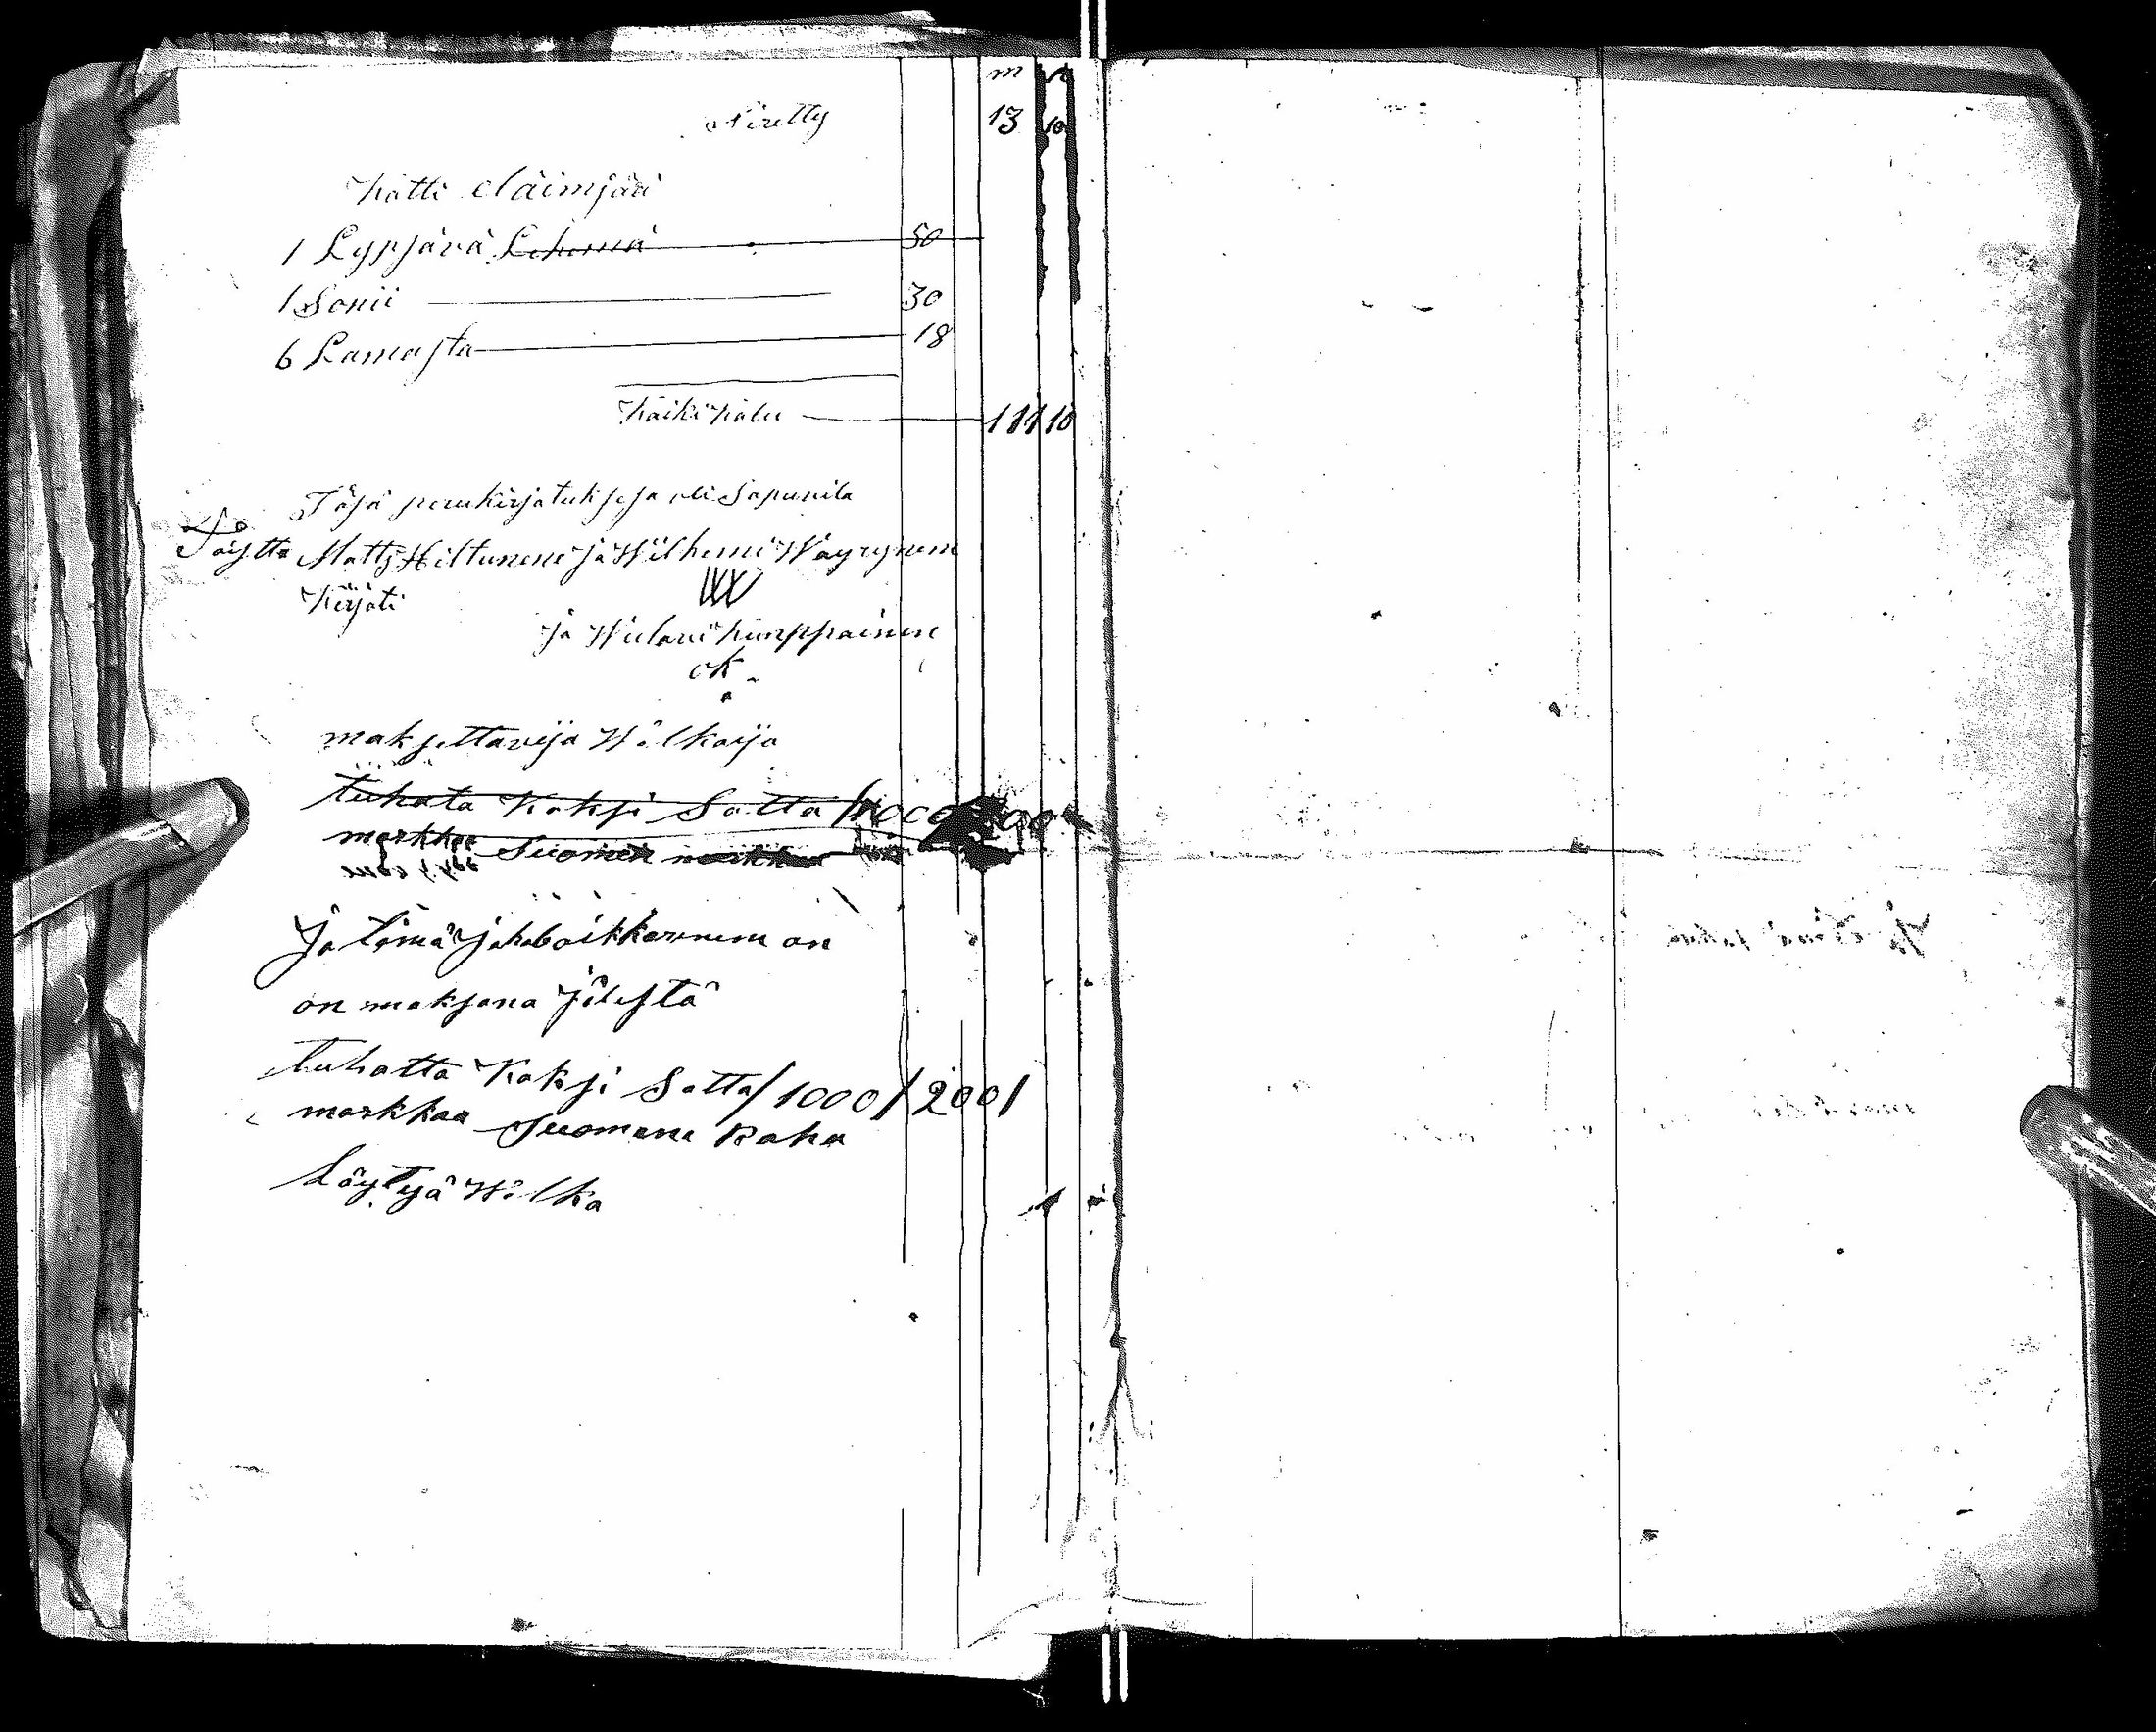 m
Siretty 13 10
Kotti eläimjää
1 Lypjävä Lehemä 50
1 Sonii 30
6 Lamasta 18
Kaiki kalu 111 10
Täsä perukirjatuksesa oli Sapuvila
Matti Hiltunene ja Wilhemi Wäyrynene
Kirjoti
ja Kimppainene
maksettavija Wälkoija
tuhata Kaksi Satta /1000
markkaa Suomen markkaa
Ja tämä on
on maksana jälestä
tuhatta Kaksi Satta /1000/200/
markkaa Suomene Raha
Löytyä Wälka